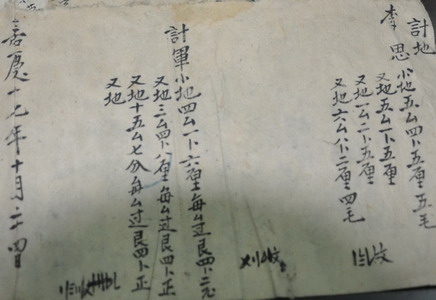 計地
李思小地五厶四卜五厘五毛
又地五厶一卜五厘
又地一厶二卜五厘
又地六厶八卜二厘四毛
計軍小地四厶一卜六厘每厶过艮四卜二
又地三厶四卜八厘每厶过艮四卜正
又地十五厶七分每厶过艮四卜正
又地
嘉慶十七年十月二十四日